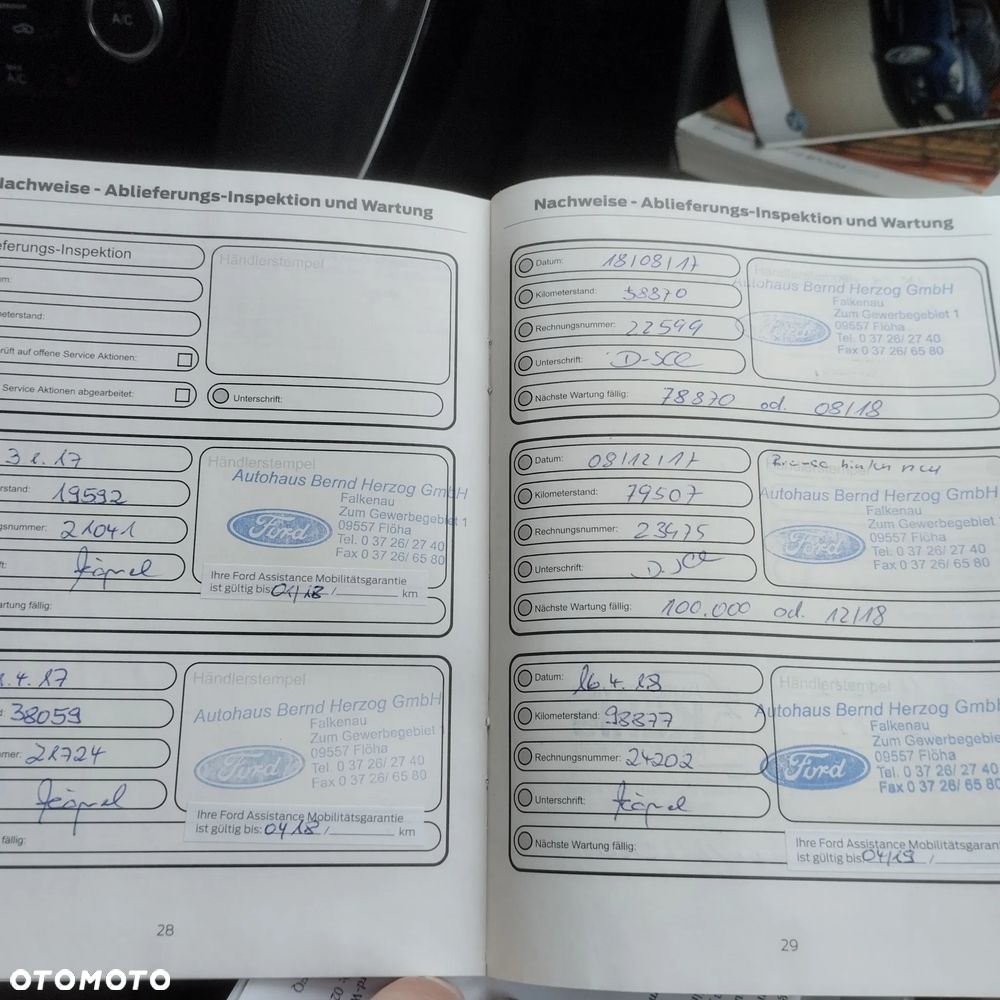 A/C
A/C
Nachweise - Ablieferungs-Inspektion und Wartung
eferungs-Inspektion
Händlerstempel
m:
eterstand:
rüft auf offene Service Aktionen:
Service Aktionen abgearbeitet:
Unterschrift:
17
rstand: 19592
gsnummer: 21041
t:
artung fällig:
Händlerstempel
Autohaus Bernd Herzog GmbH
Falkenau
Zum Gewerbegebiet 1
09557 Flöha
Tel. 0 37 26/ 27 40
Fax 0 37 26/ 65 80
Ford
Ihre Ford Assistance Mobilitätsgarantie
ist gültig bis 01/18 / km
.4.17
d: 38059
mer: 21724
fällig:
Händlerstempel
Autohaus Bernd Herzog GmbH
Falkenau
Zum Gewerbegebiet 1
09557 Flöha
Tel. 0 37 26/ 27 40
Fax 0 37 26/ 65 80
Ford
Ihre Ford Assistance Mobilitätsgarantie
ist gültig bis: 04/18 / km
28
Nachweise - Ablieferungs-Inspektion und Wartung
Datum: 18/08/17
Kilometerstand: 58870
Rechnungsnummer: 22599
Unterschrift:
Nächste Wartung fällig: 78870 od. 08/18
Händlerstempel
Autohaus Bernd Herzog GmbH
Falkenau
Zum Gewerbegebiet 1
09557 Flöha
Tel. 0 37 26/ 27 40
Fax 0 37 26/ 65 80
Ford
Datum: 08/12/17
Kilometerstand: 79507
Rechnungsnummer: 23475
Unterschrift:
Nächste Wartung fällig: 100.000 od. 12/18
Autohaus Bernd Herzog GmbH
Falkenau
Zum Gewerbegebiet
09557 Flöha
Tel. 0 37 26/ 27 40
Fax 0 37 26/ 65 80
Ford
Datum: 16.4.18
Kilometerstand: 98877
Rechnungsnummer: 24202
Unterschrift:
Nächste Wartung fällig:
Händlerstempel
Autohaus Bernd Herzog GmbH
Falkenau
Zum Gewerbegebie
09557 Flöha
Tel. 0 37 26/ 27 40
Fax 0 37 26/ 65 80
Ford
Ihre Ford Assistance Mobilitätsgaran
ist gültig bis 04/19 /
29
OTOMOTO